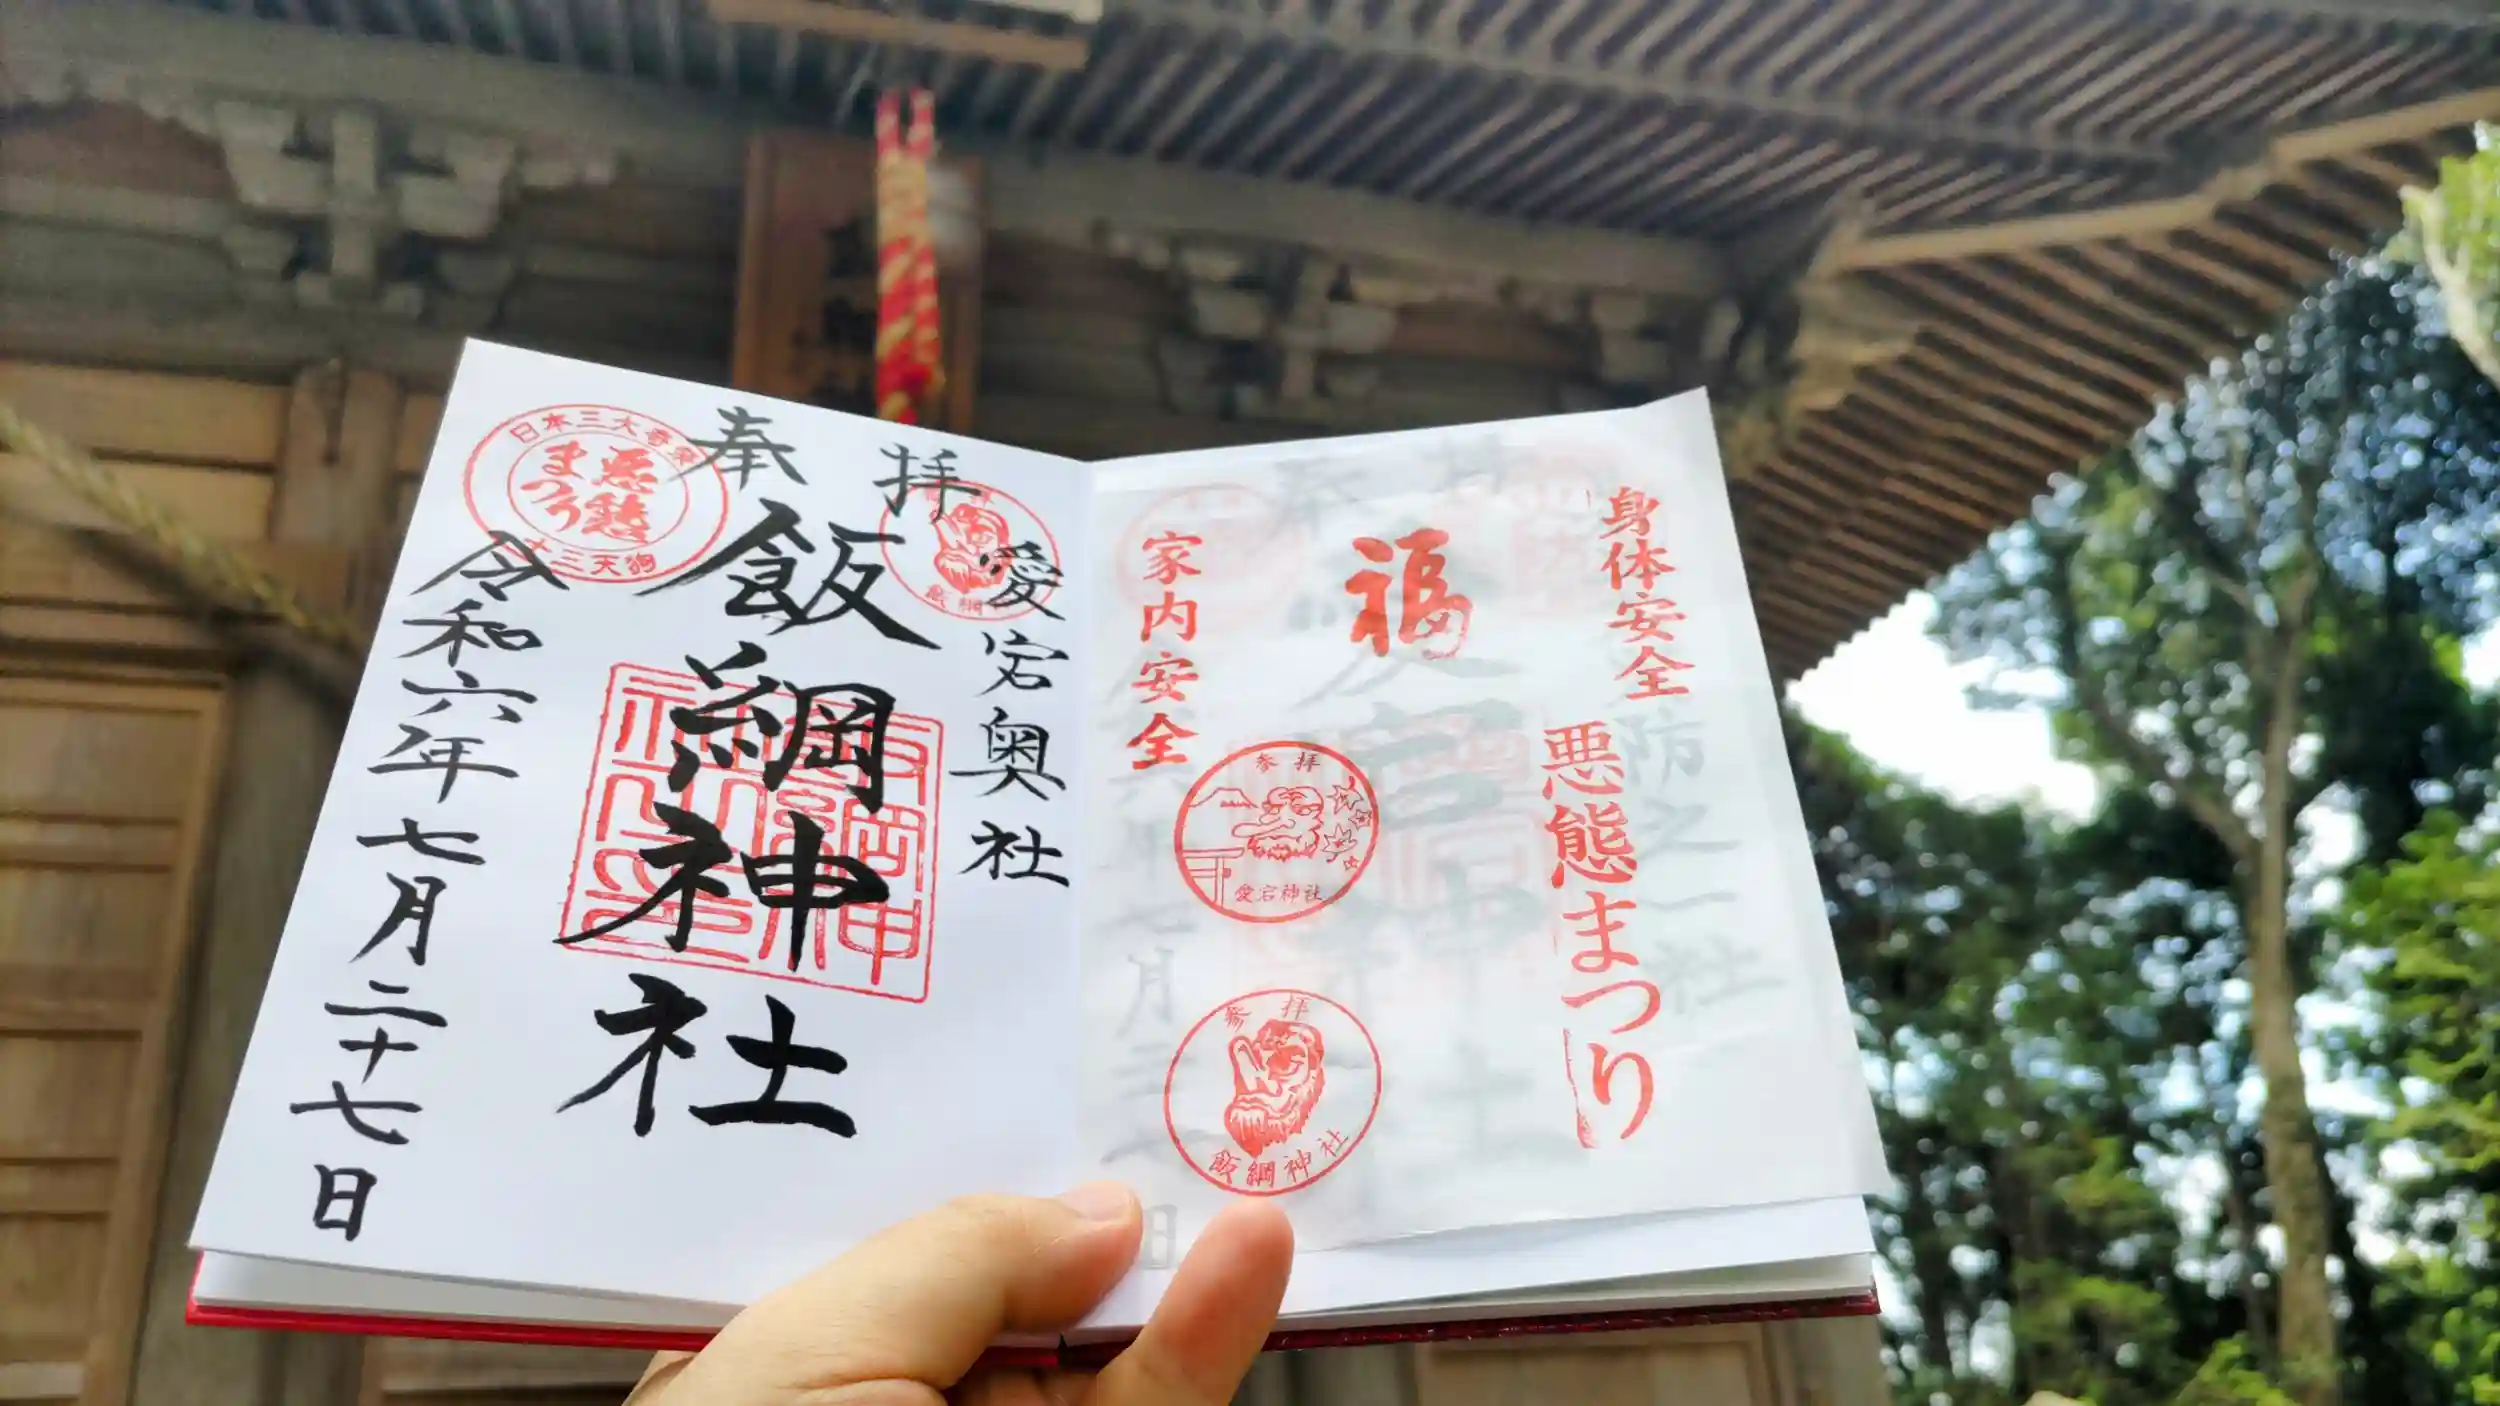 身体安全
悪態まつり
福
家内安全
参拝
愛宕神社
参拝
飯綱神社
防之一社
奉拝
愛宕奥社
飯綱神社
令和六年七月二十七日
悪態まつり
十三天狗